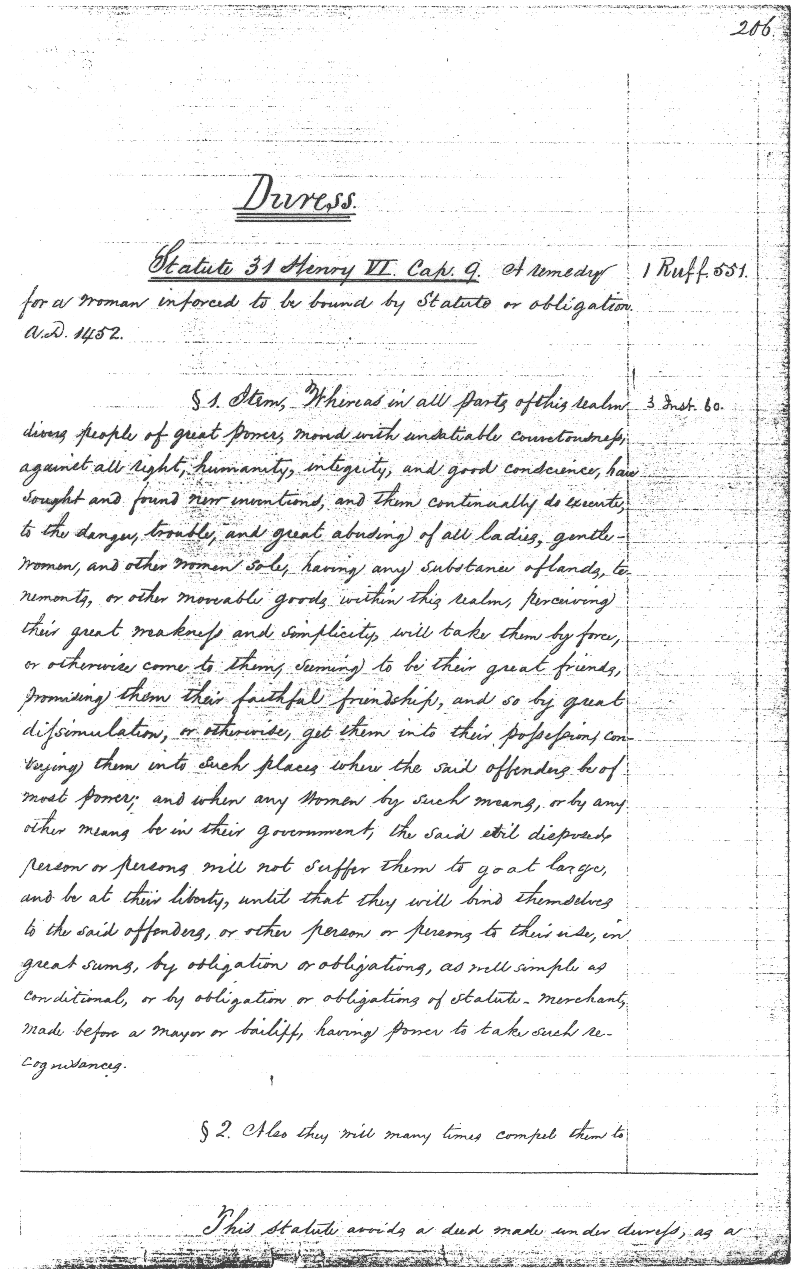 206.
Duress.
Statute 31 Henry VI. Cap. 9. A remedy
1 Ruff. 551.
for a woman inforced to be bound by Statute or obligation.
A.D. 1452.
§ 1. Item, Whereas in all parts of this realm
3 Inst. 60.
divers people of great power, moved with unsatiable covetousness,
against all right, humanity, integrity, and good conscience, have
sought and found new inventions, and them continually do execute,
to the danger, trouble, and great abusing of all ladies, gentle-
women, and other women sole, having any substance of lands, te-
nements, or other moveable goods within this realm, perceiving
their great weakness and simplicity, will take them by force,
or otherwise come to them, seeming to be their great friends,
promising them their faithful friendship, and so by great
dissimulation, or otherwise, get them into their possession, con-
veying them into such places where the said offenders be of
most power; and when any women by such means, or by any
other means be in their government, the said evil disposed
person or persons will not suffer them to go at large,
and be at their liberty, until that they will bind themselves
to the said offenders, or other person or persons to their use, in
great sums, by obligation or obligations, as well simple as
conditional, or by obligation or obligations of statute-merchant,
made before a mayor or bailiff, having power to take such re-
cognisances.
§ 2. Also they will many times compel them to
This statute avoids a deed made under duress, as a